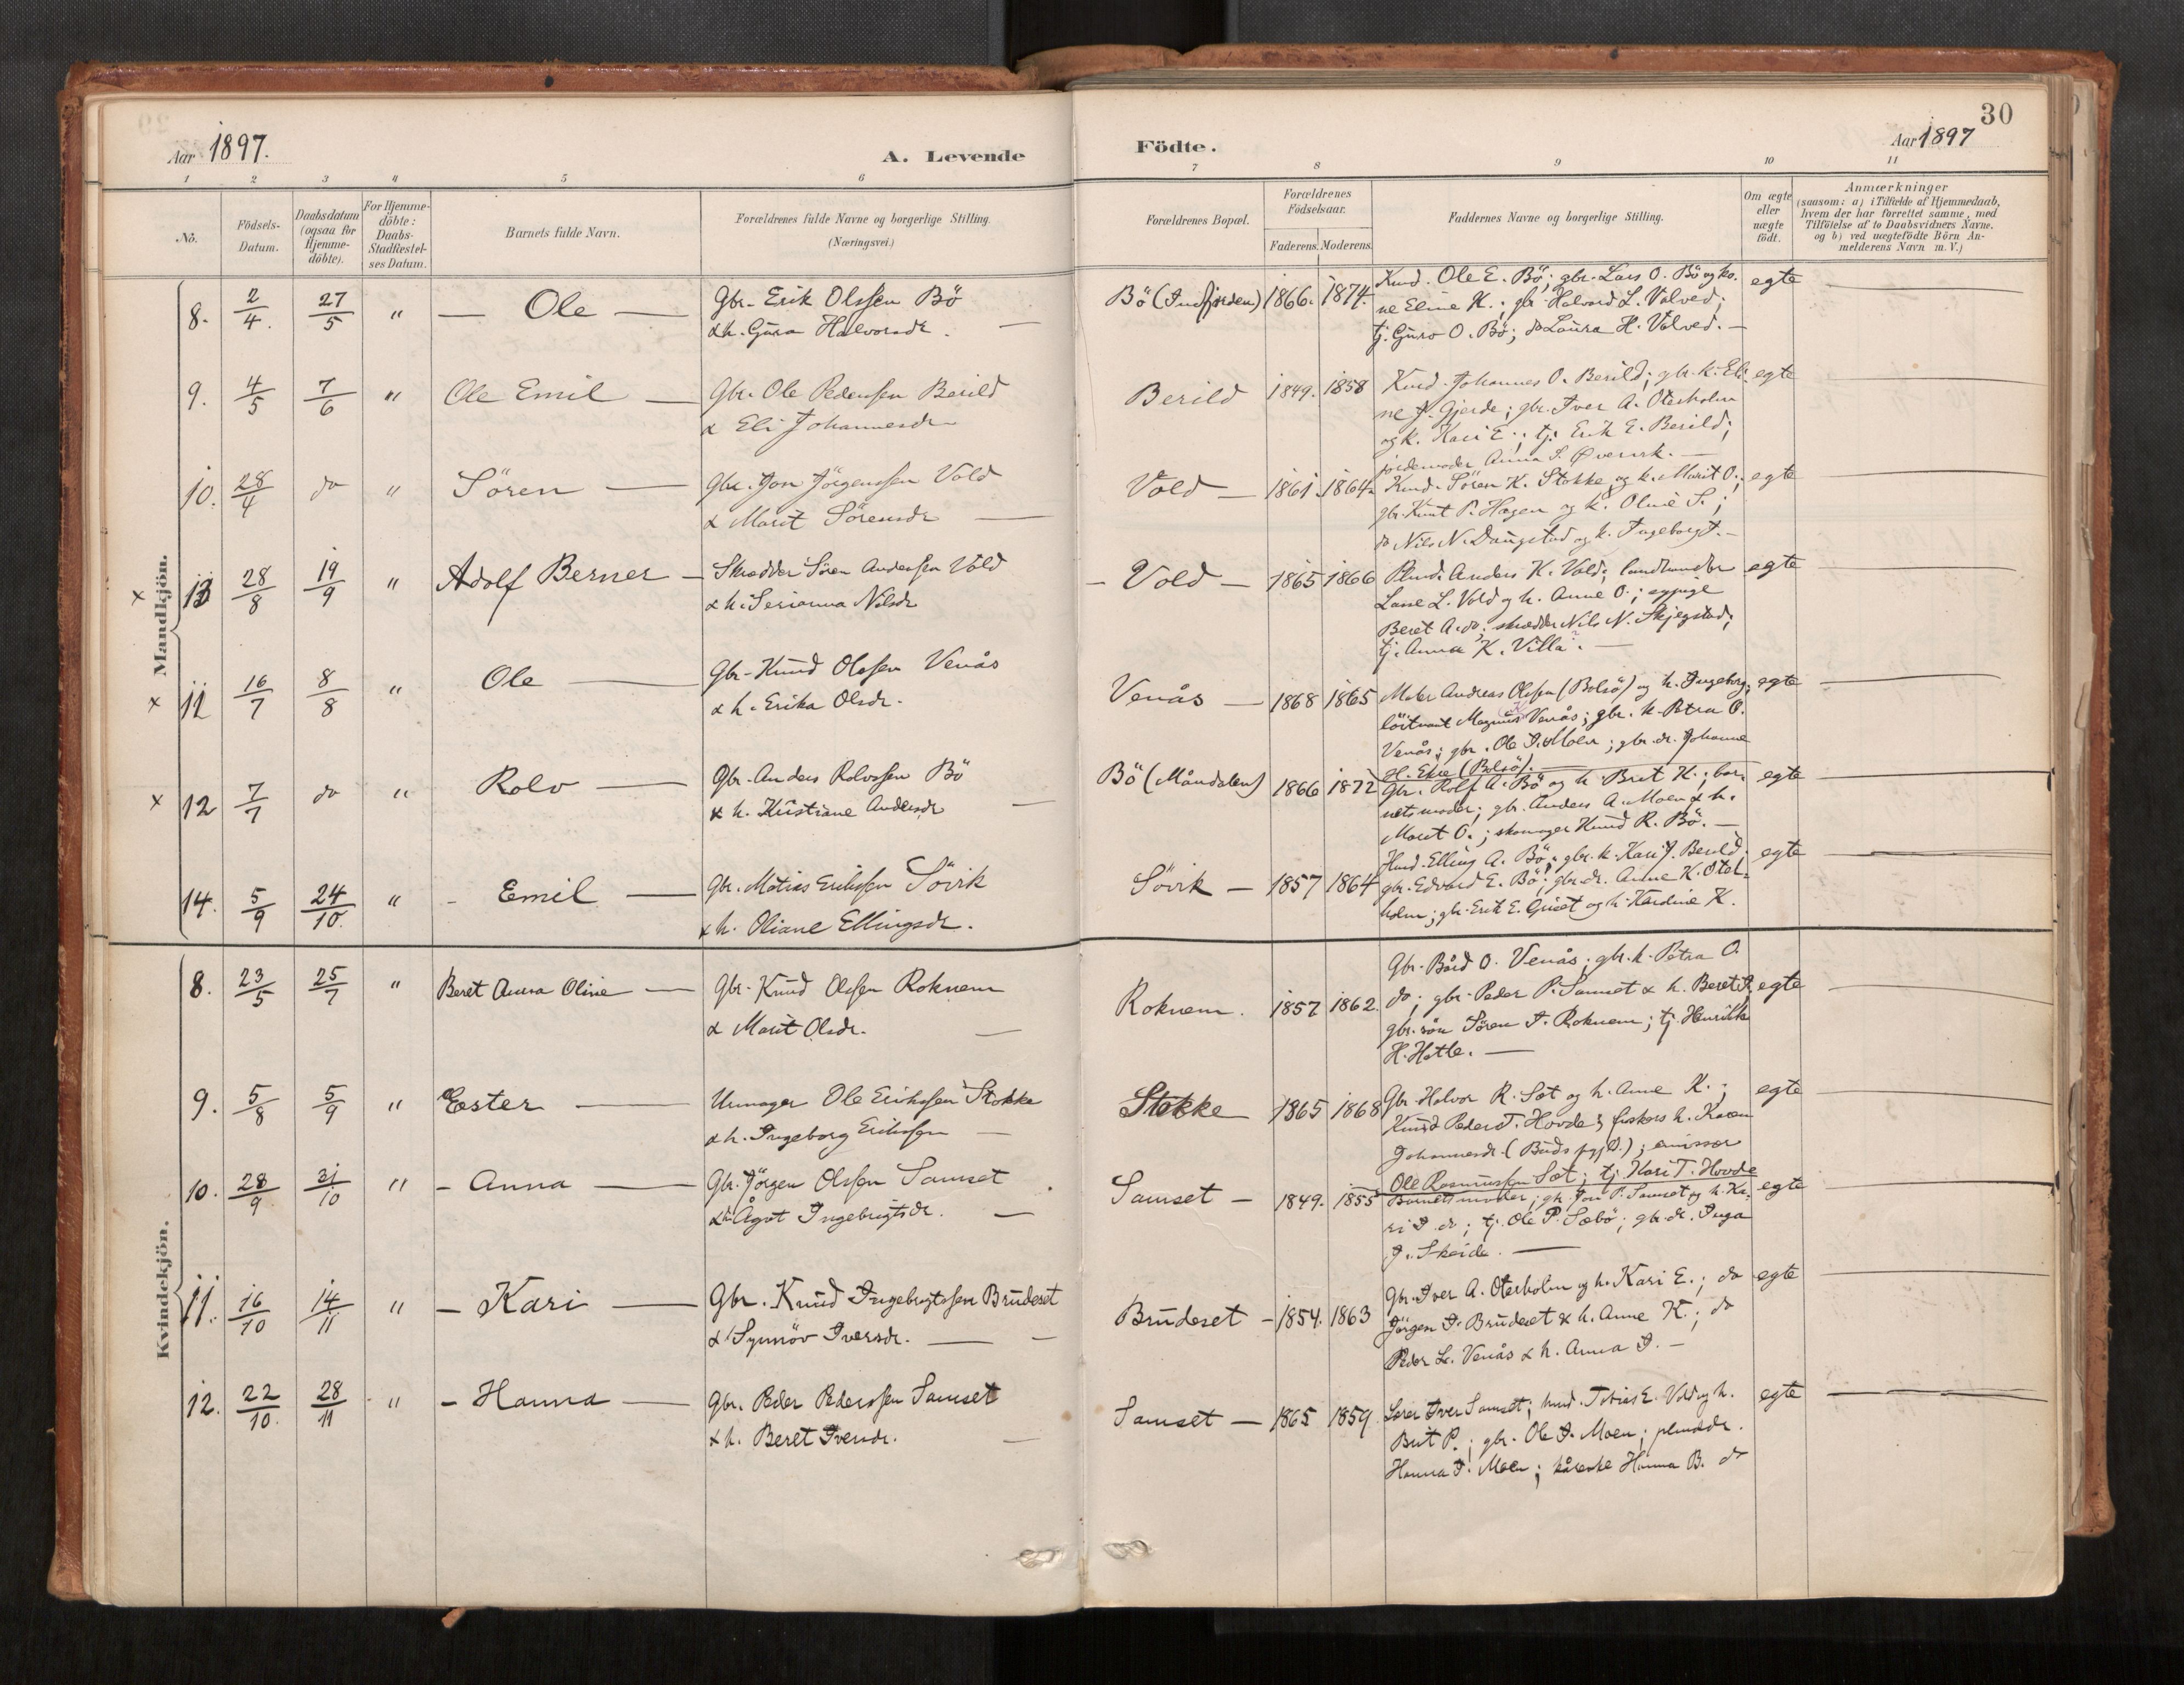 30
Aar 1897.
A. Levende
Födte.
Aar 1897
1 2 3 4 5 6 7 8 9 10 11
No.
Födsels-
Datum.
Daabsdatum
(ogsaa for
Hjemme-
döbte).
For Hjemme-
döbte:
Daabs-
Stadfæstel-
ses Datum.
Barnets fulde Navn.
Forældrenes fulde Navne og borgerlige Stilling.
(Næringsvei.)
Forældrenes Bopæl.
Forældrenes
Födselsaar.
Faderens. Moderens.
Faddernes Navne og borgerlige Stilling.
Om ægte
eller
uægte
födt.
Anmærkninger
(saasom: a) i Tilfælde af Hjemmedaab,
hvem der har forrettet samme, med
Tilföielse af to Daabsvidners Navne.
og b) ved uægtefödte Börn An-
melderens Navn m. V.)
Mandkjön.
8. 2/4. 27/5 " — Ole — Gbr. Erik Olssen Bö
& h. Gura Halvorsdr. —
Bö (Indfjorden) 1866. 1874.
Kmd. Ole E. Bö; gbr. Lars O. Bö og ko-
ne Eline K.; gbr. Halvord L. Volved;
tj. Guro O. Bö; do Laura H. Volved. —
egte
9. 4/5 7/6 " Ole Emil — Gbr. Ole Pedersen Berild
& Eli Johannesdr
Berild 1849. 1858
Kmd. Johannes O. Berild; gbr. k. Eli-
ne J. Gjerde; gbr. Iver A. Oterholm
og k. Kari E.; tj. Erik E. Berild;
jordemoder Anna S. Øverark. —
egte
10. 28/4 do " Sören — Gbr. Jon Jörgenssen Vold
& Marit Sörensdr —
Vold — 1861. 1864.
Kmd. Sören K. Stokke og k. Marit O.;
gbr. Knut P. Hagen og k. Oline S.;
do Nils N. Daugstad og k. Ingeborg T. —
egte
x 13 28/8 19/9 " Adolf Berner — Skrædder Sören Anderssen Vold
& h. Serianna Nilsdr
— Vold — 1865 1866
Plmd. Anders K. Vold; landhandler
Lasse L. Vold og h. Anne O.;
Beret A. do; skrædder Nils N. Skjegstad;
tj. Anna K. Villa. —
egte
x 11 16/7 8/8 " Ole — Gbr. Knud Olssen Venås
& h. Erika Olsdr.
Venås — 1868 1865
Maler Andreas Olssen (Bolsö) og h. Ingeborg;
löitnant Magnus K Venås; gbr. k. Petra O.
Venås; gbr. Ole I. Moen; gbr. dr. Johanne
H. Eke (Bolsö). —
egte
x 12 7/7 do " Rolv — Gbr. Anders Rolvssen Bö
& h. Kristiane Andersdr —
Bö (Måndalen) 1866 1872
Gbr. Rolf A. Bö og h. Brit K.; bar-
nets moder; gbr. Anders A. Moen & h.
Marit O.; skomager Knud R. Bö. —
egte
14. 5/9 24/10. " - Emil — Gbr. Matias Erikssen Sövik
& h. Oliane Ellingsdr.
Sövik — 1857 1864
Kmd. Elling A. Bö; gbr. k. Kari J. Berild;
gbr. Edvard E. Bö; gbr. dr. Anne K. Oter-
holm; gbr. Erik E. Griset og h. Kardine K.
egte
Kvindekjön.
8. 23/5 25/7 " Beret Anna Oline — Gbr. Knud Olssen Roknem
& Marit Olsdr. —
Roknem. 1857 1862.
Gbr. Bård O. Venås; gbr. k. Petra O.
do; gbr. Peder P. Samset & h. Beret I.;
gbr. sön Sören I. Roknem; tj. Henrikke
H. Hatle. —
egte
9. 5/8 5/9 " Ester — Urmager Ole Erikssen Stokke
& h. Ingeborg Erikssen —
Stokke 1865 1868
Gbr. Halvor R. Sæt og h. Anne K.;
Kmd Peder T. Hovde; fiskers h. Karen
Johannesdr. (Buds pgjld.); emissær
Ole Rasmussen Sæt; tj. Kari T. Hovde
egte
10. 28/9 31/10 " - Anna — Gbr. Jörgen Olssen Samset
& h. Ågot Ingebrigtsdr. —
Samset — 1849. 1855
Barnets moder; gbr. Jon P. Samset og h. Ka-
ri I. dr; tj. Ole P. Sæbö; gbr. dr. Inga
I. Skeide. —
egte
11. 16/10 14/11 " - Kari — Gbr. Knud Ingebrigtssen Brudeset
& h Synnöv Iversdr. —
Brudeset — 1854. 1863
Gbr. Iver A. Oterholm og h. Kari E.; do
Jörgen I. Brudeset & h. Anne K.; do
Peder L. Venås & h. Anna I. —
egte
12. 22/10. 28/11 " - Hanna — Gbr. Peder Pederssen Samset
& h. Beret Iversdr. —
Samset — 1865 1859.
Lærer Iver Samset; kmd. Tobias E. Vold og h.
Brit P.; gbr. Ole I. Moen; plmddr.
Hanna I. Moen; kårenke Hanna B. do
egte